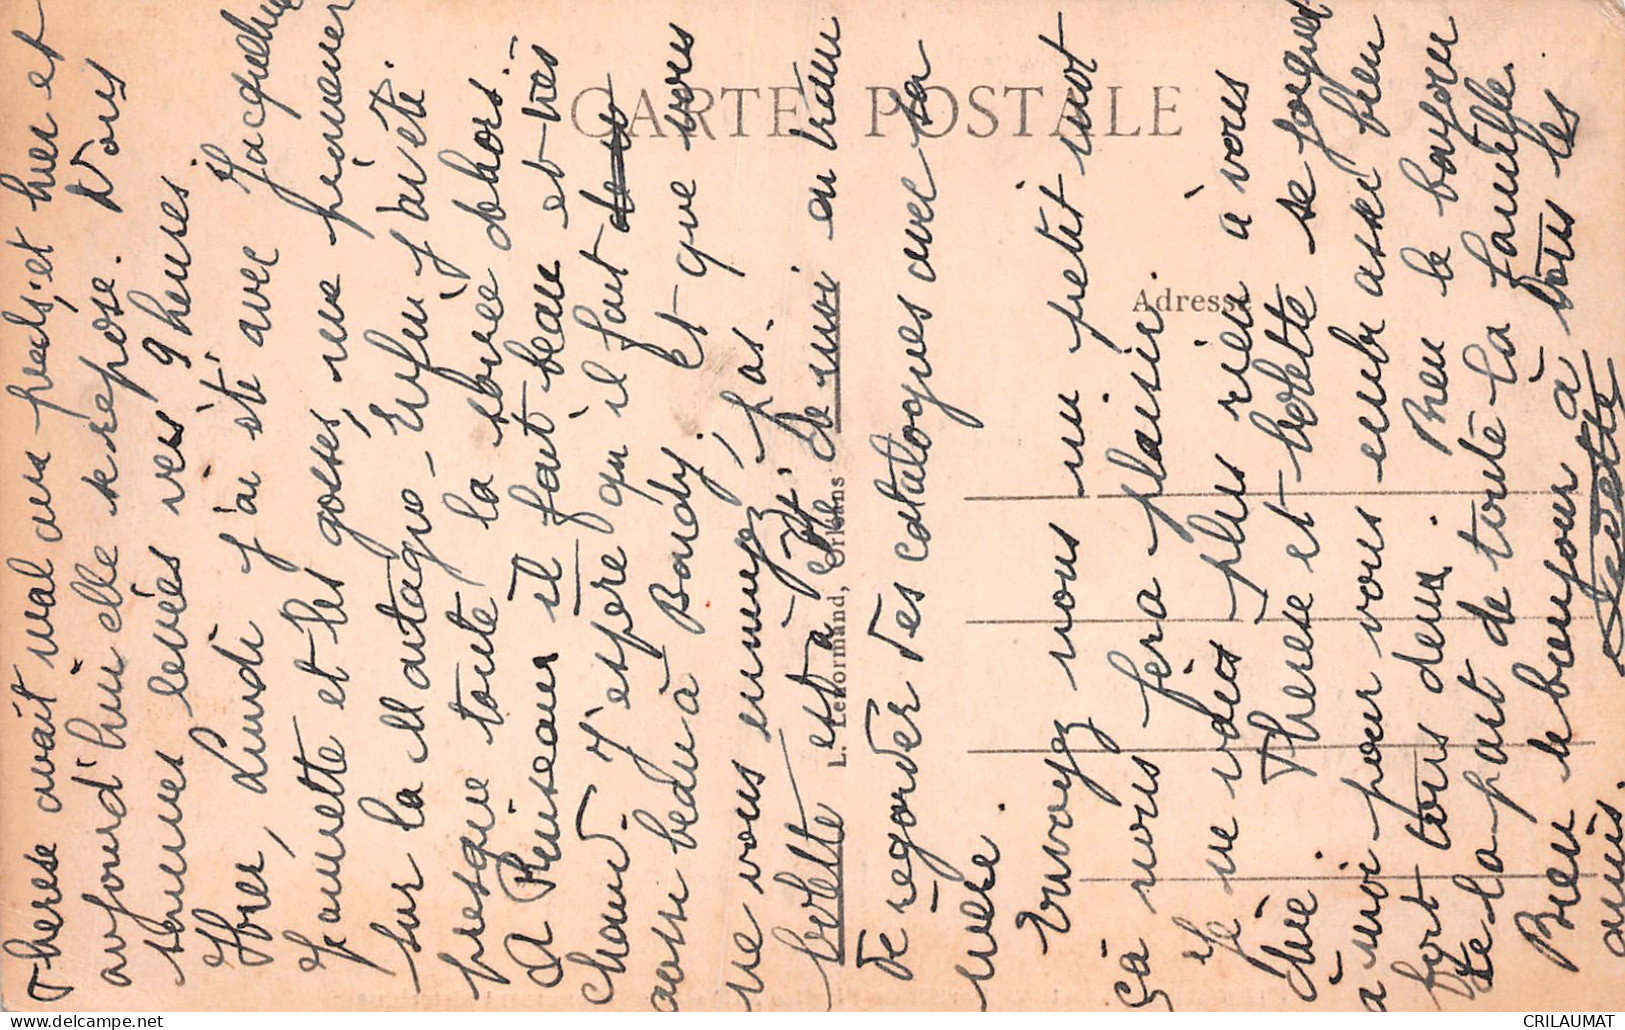 Therese avait mal aux pieds, et hier et
aujourd'hui elle se repose. Nous
sommes levées vers 9 heures.
Hier, Lundi j'ai été avec Jacqueline
Jeannette et les gosses, me promener
sur la Montagne - Enfin j'ai été
presque toute la soirée dehors.-
A Puiseaux il fait beau et très
chaud. J'espère qu'il fait
aussi beau à Bondy, et que vous
ne vous ennuyez pas.
bolette est à côté de moi en train
de regarder des catalogues avec sa
mère.
Envoyez nous un petit mot
çà nous fera plaisir.
Je ne vois plus rien à vous
dire. Therese et bolette se joignent
à moi pour vous embr assez bien
fort tous deux. Bien le bonjour
de la part de toute la famille.
Bien le bonjour à tous les
amis. Ledette
CARTE POSTALE
Adresse
L. Lenormand, Orléans
CRILAUMAT